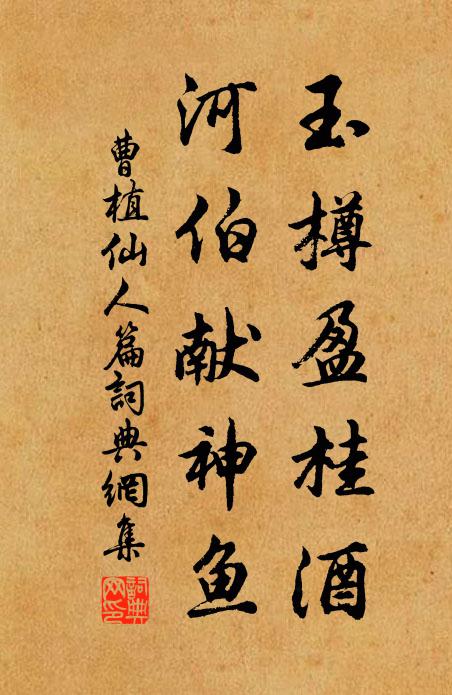 玉樽盈桂酒
河伯献神鱼
曹植仙人篇詞典網集
詞典網印